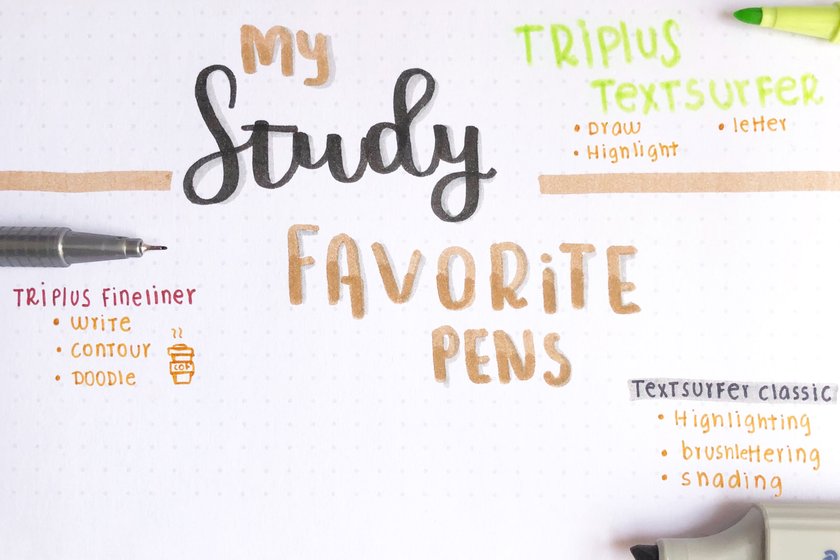 My
Study
FAVORiTE
PENS
TRiPLUS
TEXTSURFER
• Draw
• Highlight
• letter
TRiPLUS Fineliner
• Write
• CONTOUR
• DOODle
COF
TEXTSURFER Classic
• Highlighting
• brushlettering
• shading